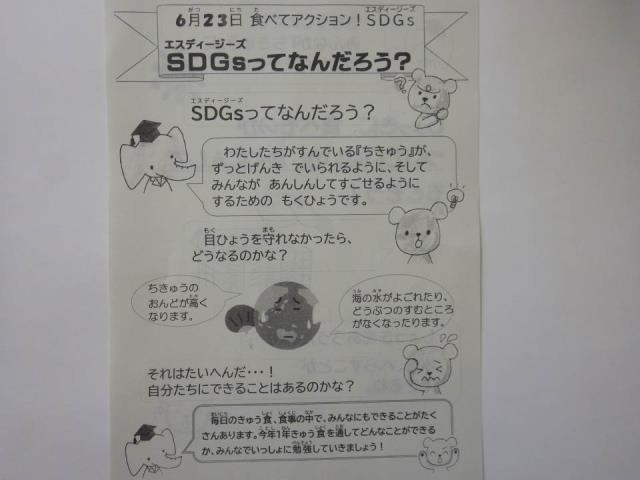 6月23日 食べてアクション！SDGs
SDGsってなんだろう？
SDGsってなんだろう？
わたしたちがすんでいる『ちきゅう』が、
ずっとげんき でいられるように、そして
みんなが あんしんしてすごせるように
するための もくひょうです。
目ひょうを守れなかったら、
どうなるのかな？
ちきゅうの
おんどが高く
なります。
海の水がよごれたり、
どうぶつのすむところ
がなくなったります。
それはたいへんだ・・・！
自分たちにできることはあるのかな？
毎日のきゅう食、食事の中で、みんなにもできることがたく
さんあります。今年1年きゅう食を通してどんなことができる
か、みんなでいっしょに勉強していきましょう！